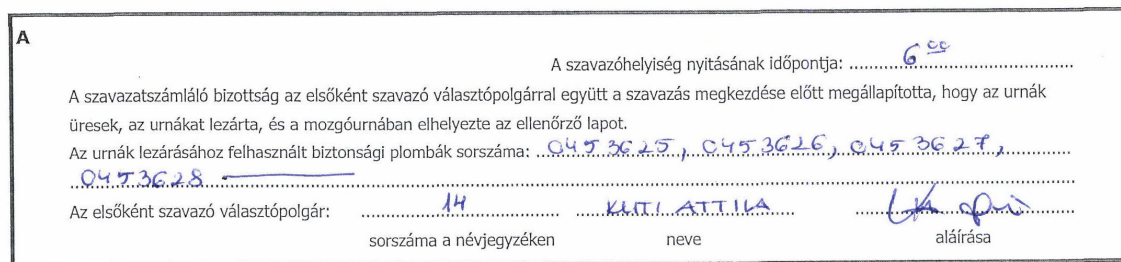 A
A szavazóhelyiség nyitásának időpontja: 6 00
A szavazatszámláló bizottság az elsőként szavazó választópolgárral együtt a szavazás megkezdése előtt megállapította, hogy az urnák
üresek, az urnákat lezárta, és a mozgóurnában elhelyezte az ellenőrző lapot.
Az urnák lezárásához felhasznált biztonsági plombák sorszáma: 0453625, 0453626, 0453627,
0453628
Az elsőként szavazó választópolgár: 14 KUTI ATTILA
sorszáma a névjegyzéken neve aláírása